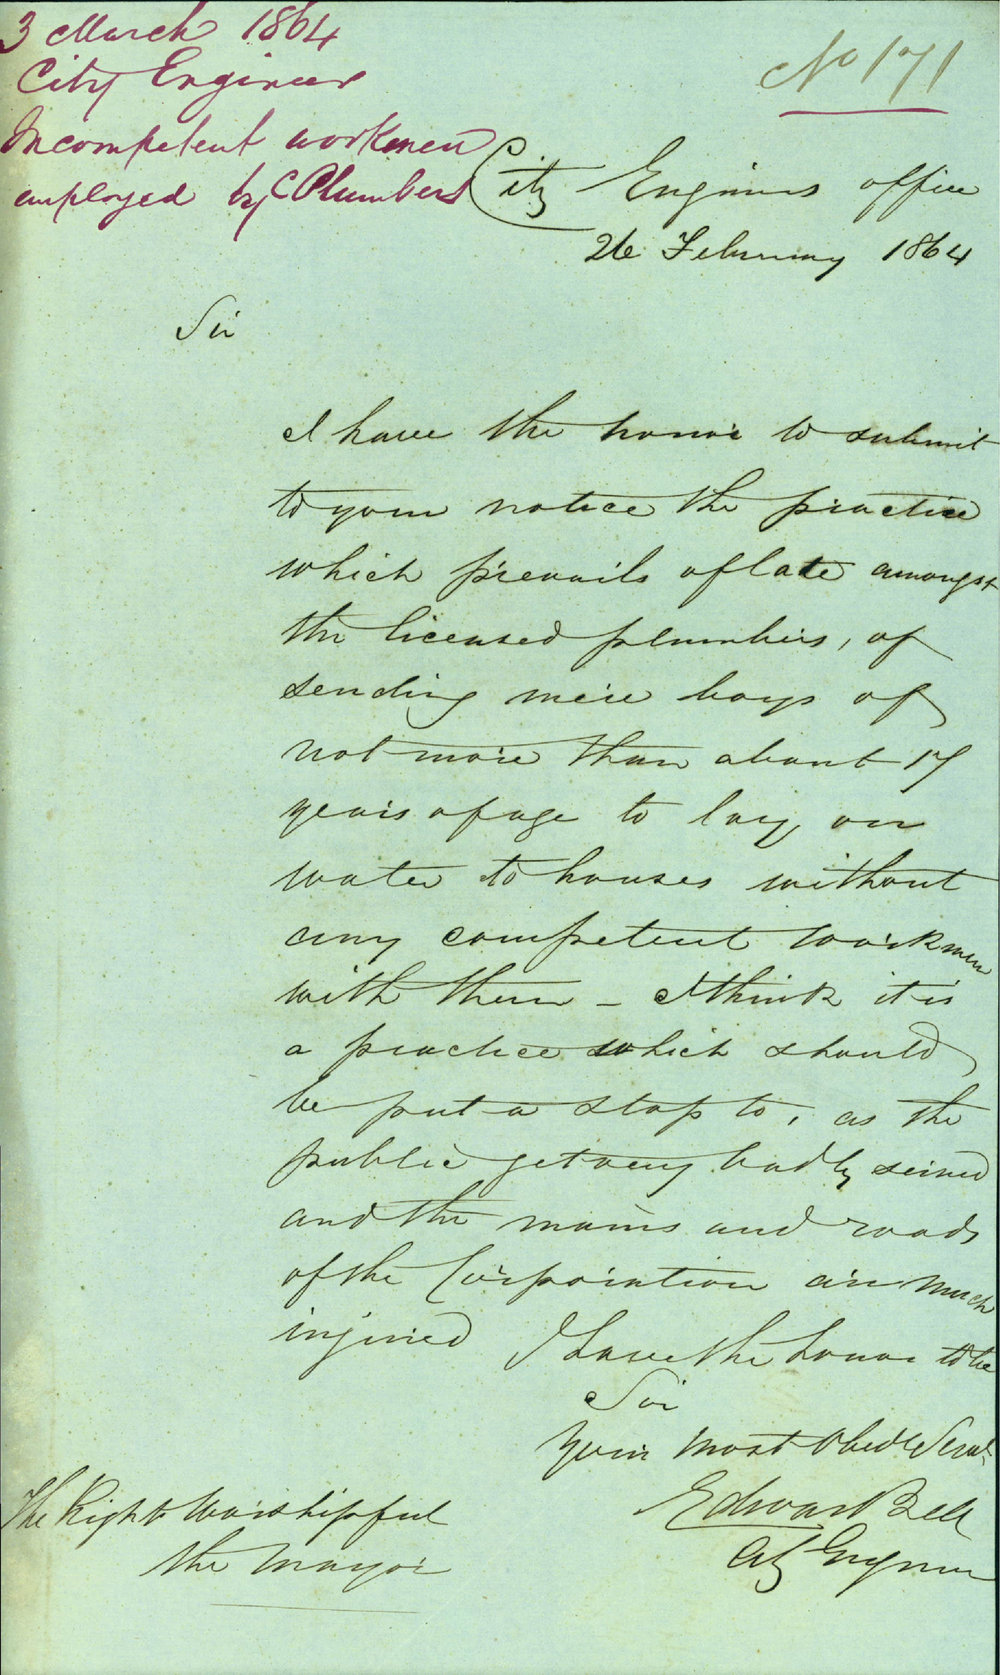 3 March 1864
City Engineer
Incompetent workmen
employed by Plumbers
No 171
City Engineers office
26 February 1864
Sir
I have the honor to submit
to your notice the practice
which prevails of late amongst
the licensed plumbers, of
sending mere boys of
not more than about 17
years of age to lay on
water to houses without
any competent workmen
with them – I think it is
a practice which should
be put a stop to, as the
public get very badly served
and the mains and roads
of the Corporation are much
injured
I have the honor to be
Sir
Your most Obedt Servt
Edward Bell
City Engineer
The Right Worshipful
the Mayor